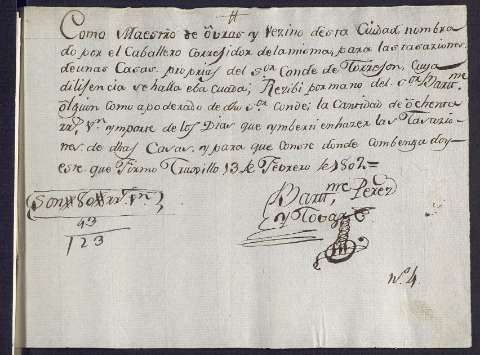 Como Maestro de Obras y Vezino desta Ciudad nombra
do por el Caballero Corregidor de la misma, para las tasaziones
de unas Casas, proprias del Sor Conde de Torrejon, cuya
dilijencia se halla eba cuada; Rezibi por mano del Sor Bartme
olguin como apoderado de dho Sor Conde; la Cantidad de ochenta
rrs, Vn ymporte de los Dias que ymberti en hazer las Tasazio
nes de dhas Casas, y para que conste donde combenga doy
este que firmo Truxillo 13 de Febrero de 1802=
Bartme Perez
y Tovar
Son # 80 # rrs Vn
43
123
No. 4.